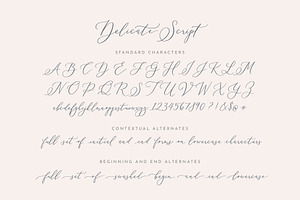 Delicate Script
STANDARD CHARACTERS
A B C D E F G H I J K L M
N O P Q R S T U V W X Y Z
abcdefghijklmnopqrstuvwxyz 1234567890 ?!&$@ +
CONTEXTUAL ALTERNATES
full set of initial and end forms on lowercase characters
BEGINNING AND END ALTERNATES
full set of swashed begin and end lowercase